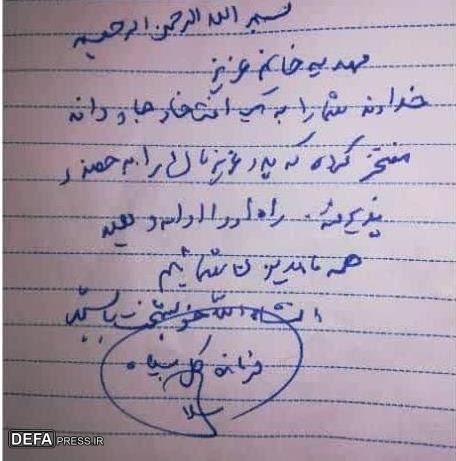 بسم الله الرحمن الرحیم
مهدیه خانم عزیز
خداوند شما را به یک افتخار جاودانه
مفتخر کرده که پدر عزیزتان را به حضور
پذیرفته. راه او را ادامه دهید
همه ما مدیون شمائیم
انشاءالله خوشبخت باشید
فرمانده کل سپاه
DEFA PRESS.IR